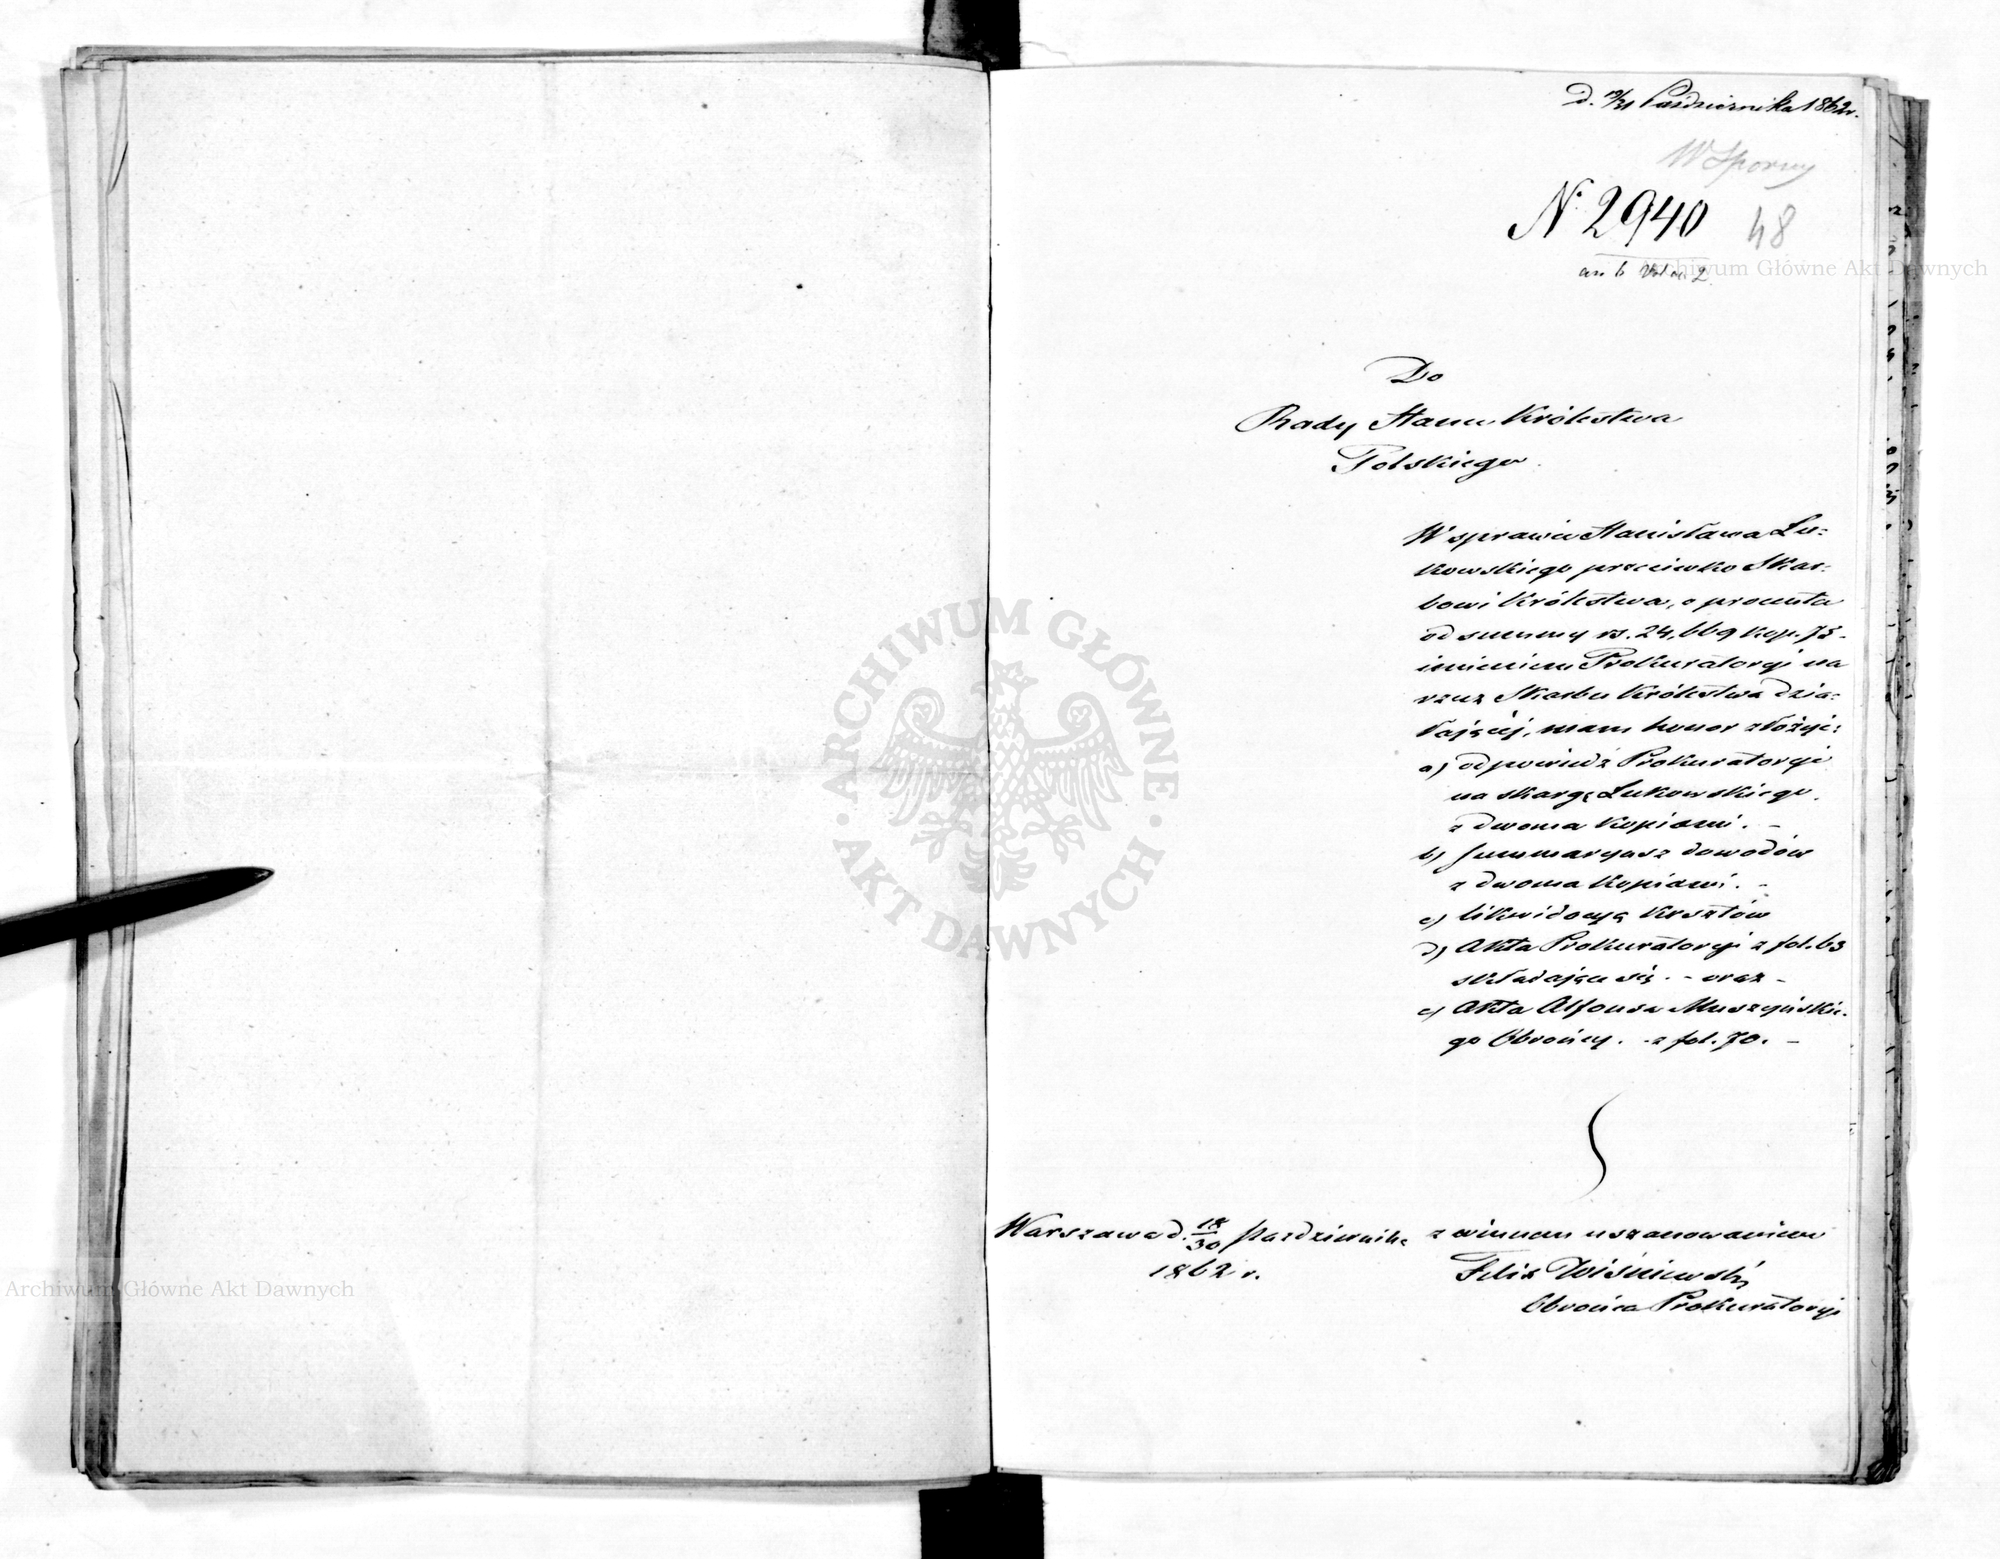 d. 19/31 Października 1862 r.
W Sporny
N. 2940 48
Vol 2
Do
Rady Stanu Królestwa
Polskiego.
W sprawie Stanisława Lu=
kowskiego przeciwko Skar=
bowi Królestwa, o procenta
od summy rs. 24,669 kop. 75 -
imieniem Prokuratoryi na
rzecz Skarbu Królestwa dzia=
łającej, mam honor złożyć:
a) odpowiedź Prokuratoryi
na skargę Lukowskiego
z dwoma kopiami. -
b) summaryusz dowodów
z dwoma kopiami. -
c) likwidacyą kosztów
d) Akta Prokuratoryi z fol. 63
składające się. - oraz -
e) Akta Alfonsa Muszyńskie=
go Obrońcy. - z fol. 70. -
Warszawa d. 18/30 Października
1862 r.
z winnem uszanowaniem
Felix Wiśniewski
Obrońca Prokuratoryi
ARCHIWUM GŁÓWNE
AKT DAWNYCH
Archiwum Główne Akt Dawnych
Archiwum Główne Akt Dawnych